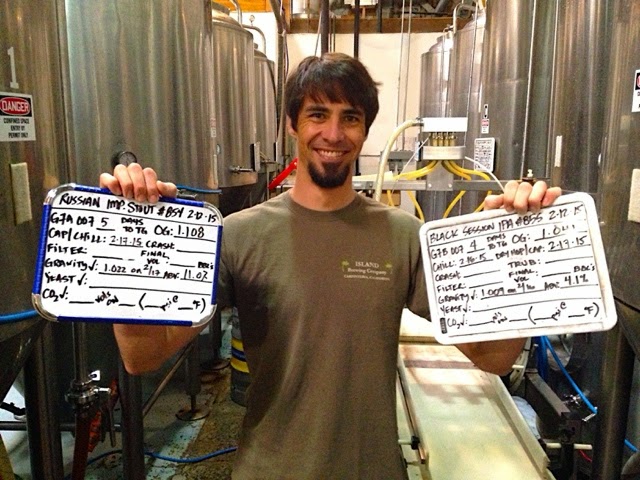 1
DANGER
CONFINED SPACE
ENTRY BY
PERMIT ONLY
RUSSIAN IMP. STOUT #BS4 2-12-15
G7A 007 5 DAYS TO TG OG: 1.108
CAP/CHILL: 2-17-15 CRASH:
FILTER: FINAL VOL: BBL'S
GRAVITY√: 1.022 on 2/17 ABV: 11.02
YEAST√:
CO2√: vols ( °C °F)
ISLAND
Brewing Company
BLACK SESSION IPA #BS5 2-12-15
G7B 007 4 DAYS TO TG OG:
CHILL: 2-16-15 DRY HOP/CAP: 2-17-15
CRASH: TRUB: BBL'S
FILTER: FINAL VOL: BBL'S
GRAVITY√: 1.009 on ABV: 4.1%
YEAST√:
CO2√: vols ( °C °F)